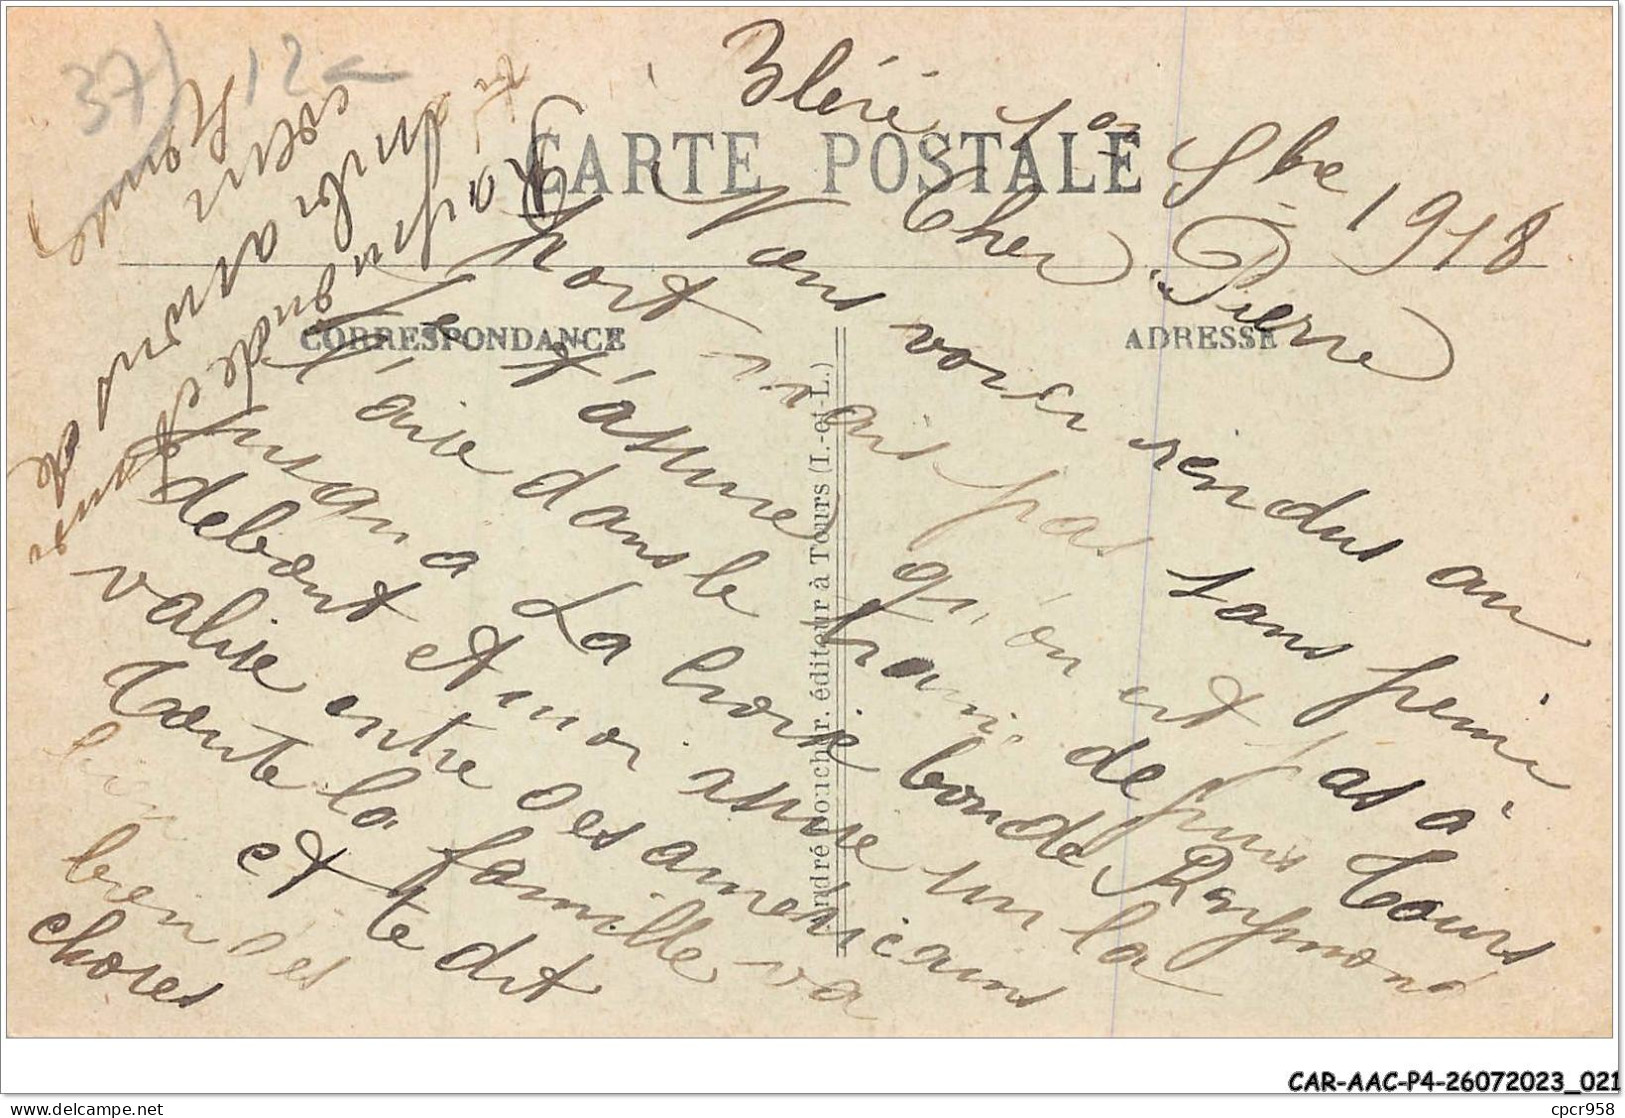 37) 12
Bléré 1er 8bre 1918
CARTE POSTALE
Cher Pierre
Nous voici rendus au
port mais pas sans peine
Je t'assure qu'on est pas à
l'aise dans le train de puis Tours
jusqu a La Croix bonde Raymond
debout et moi assise sur la
valise entre des americains
toute la famille va
bien
et te dit
bien des
choses
CORRESPONDANCE
ADRESSE
André Boucher, éditeur à Tours (I.-et-L.)
Raymonde et
nous avons
de
CAR-AAC-P4-26072023_021
delcampe.net
cpcr958